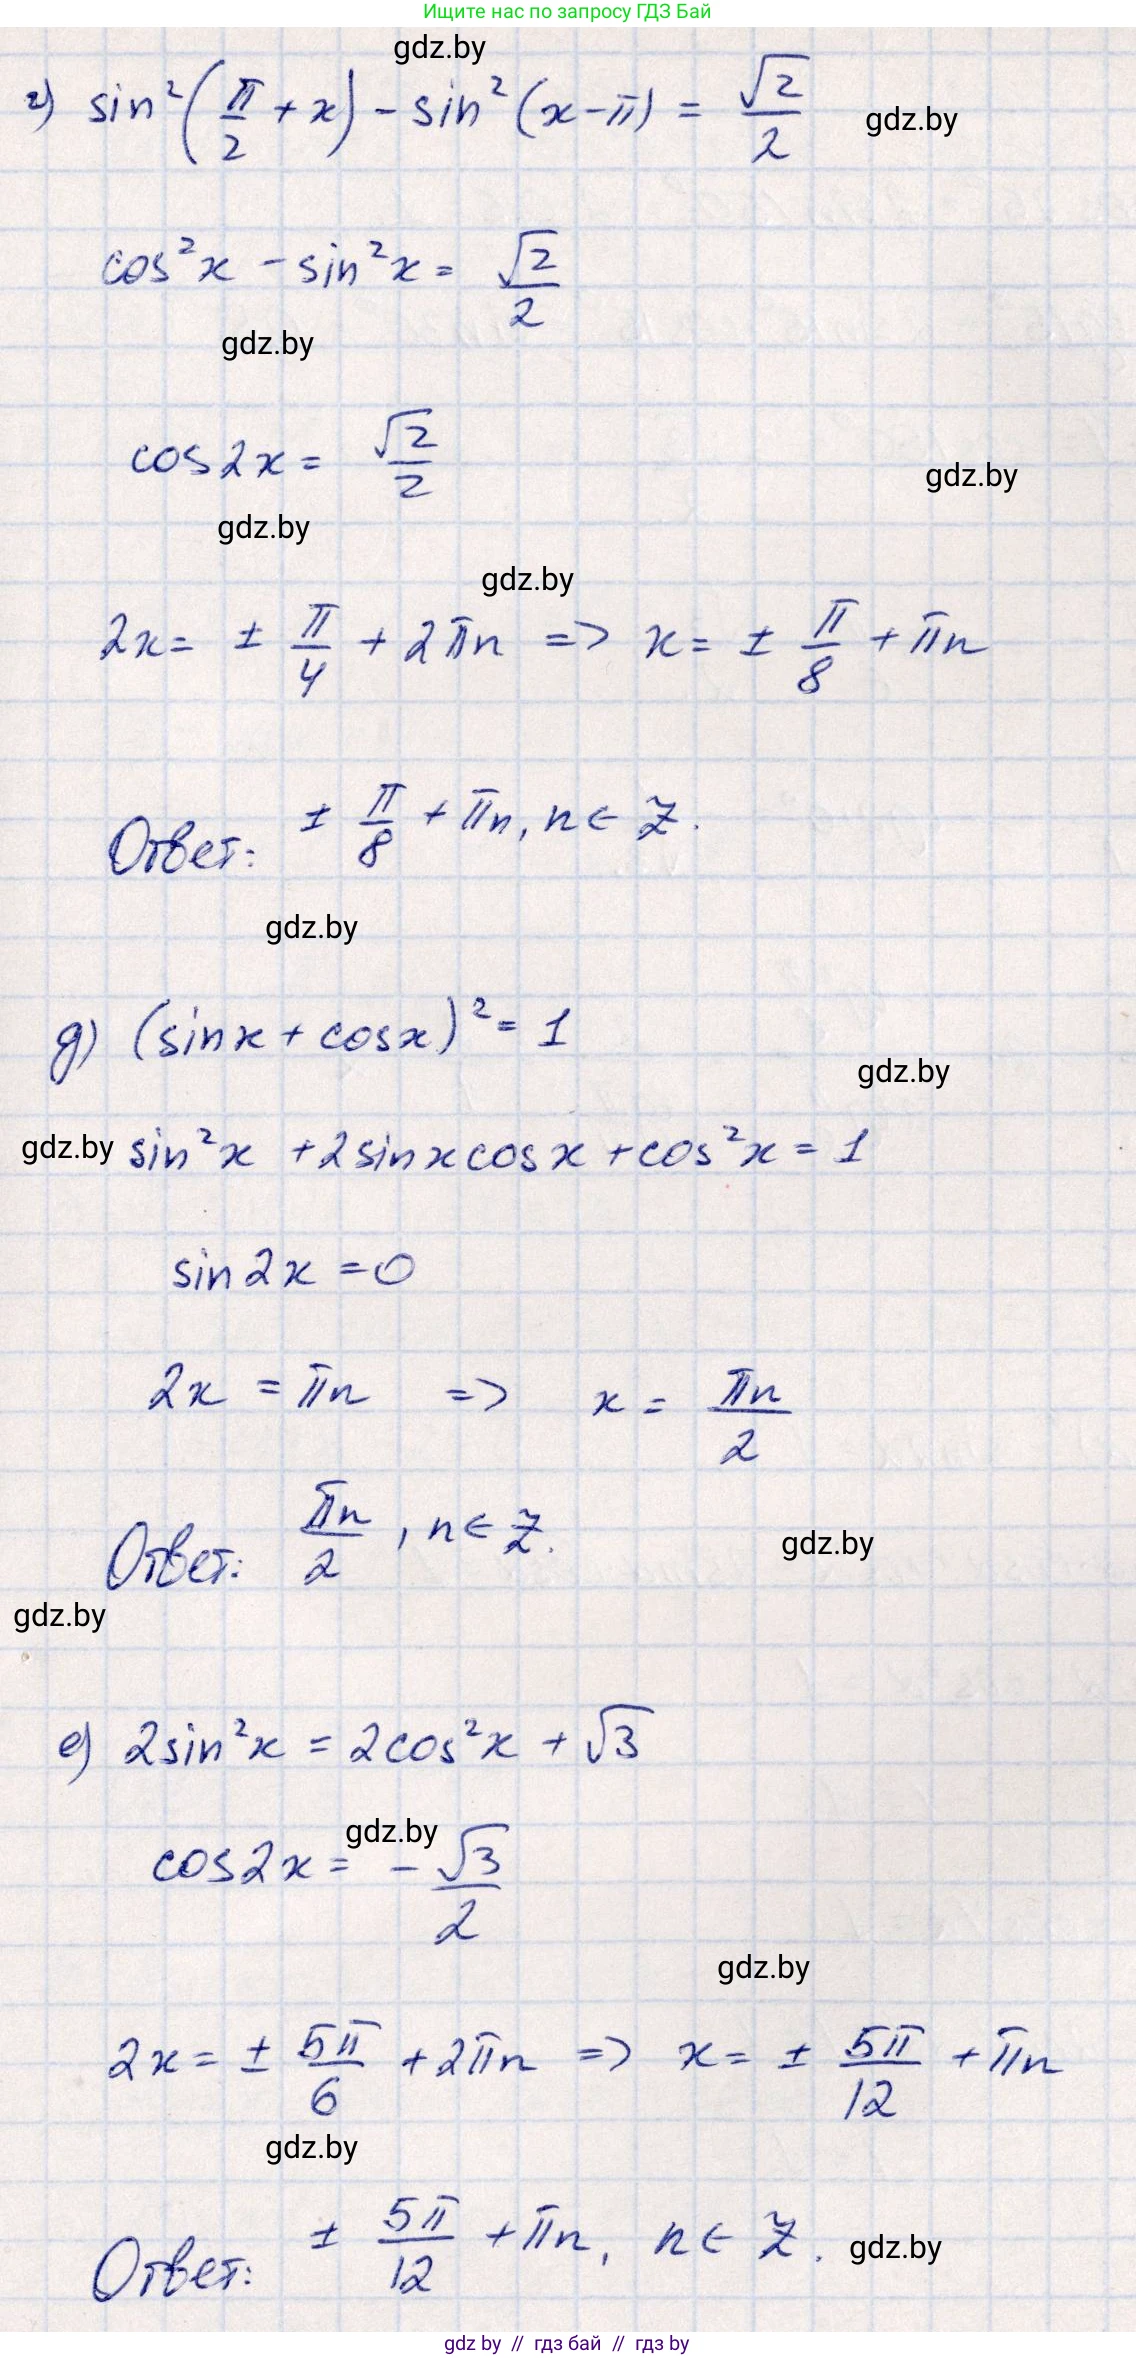 Ищите нас по запросу ГДЗ Бай
gdz.by
г) sin²(π/2 + x) - sin²(x-π) = √2/2
gdz.by
cos²x - sin²x = √2/2
gdz.by
cos2x = √2/2
gdz.by
gdz.by
gdz.by
2x = ± π/4 + 2πn => x = ± π/8 + πn
Ответ: ± π/8 + πn, n ∈ Z.
gdz.by
д) (sinx + cosx)² = 1
gdz.by
gdz.by sin²x + 2sinxcosx + cos²x = 1
sin2x = 0
2x = πn => x = πn/2
Ответ: πn/2, n ∈ Z.
gdz.by
gdz.by
е) 2sin²x = 2cos²x + √3
gdz.by
cos2x = - √3/2
gdz.by
2x = ± 5π/6 + 2πn => x = ± 5π/12 + πn
gdz.by
Ответ: ± 5π/12 + πn, n ∈ Z.
gdz.by
gdz by // гдз бай // гдз by